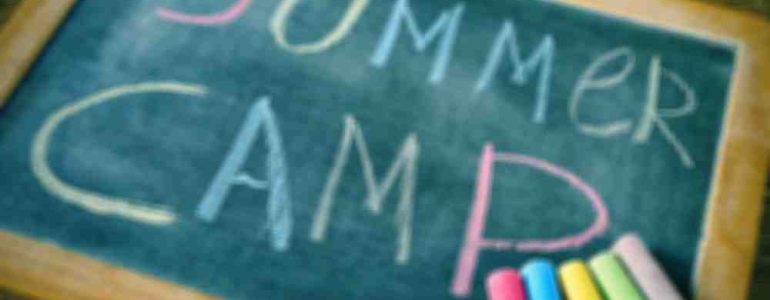 SUMMeR
CAMP